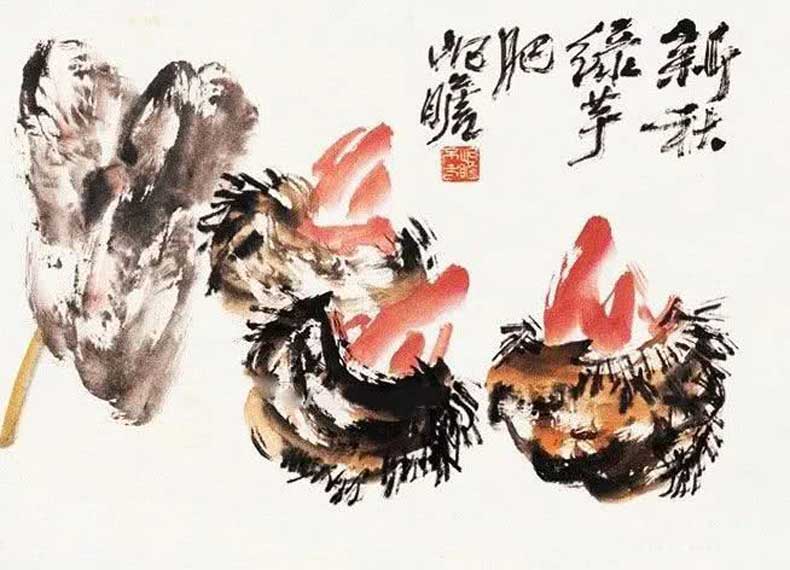 新秋
綠芋
肥
屺瞻